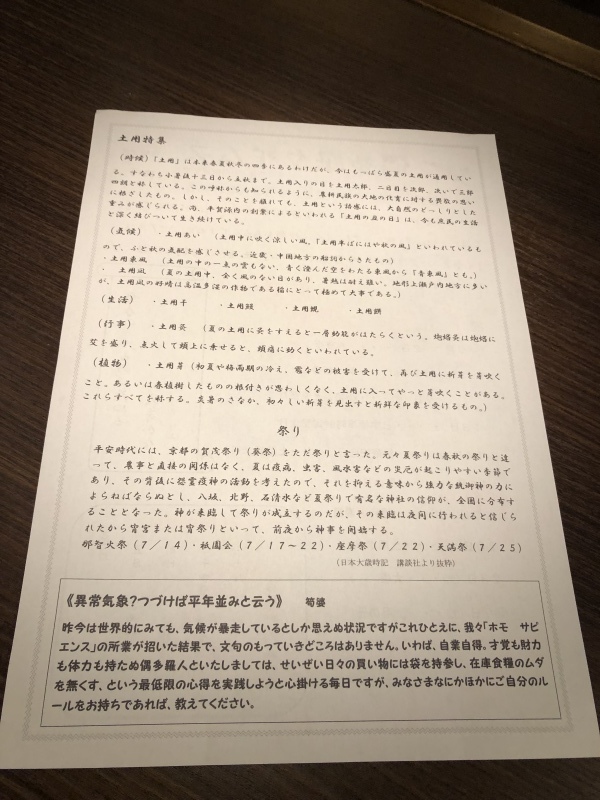 土用特集
（時候）「土用」は本来春夏秋冬の四季にあるわけだが、今はもっぱら盛夏の土用が通用してい
る。すなわち小暑後十三日から立秋まで。土用入りの日を土用太郎、二日目を次郎、次いで三郎
四郎と称している。この呼称からも知られるように、農耕民族の大地の代實に対する畏敬の思い
に根ざしたもの。しかし、そのことを離れても、土用という語感には、大自然のどっしりとした
重みが感じられる。尚、平賀源内の創案によるといわれる「土用の丑の日」は、今も庶民の生活
と深く結びついて生き続けている。
（気候）・土用あい （土用中に吹く涼しい風。「土用半ばにはや秋の風」といわれているも
ので、ふと秋の気配を感じさせる。近畿・中国地方の船詞からきたもの）
・土用東風 （土用の中の一点の雲もない、青く澄んだ空をわたる東風から「青東風」とも。）
・ 土用凪 （夏の土用中、全く風のない日があり、暑熱は耐え難い。地形上瀬戸内地方に多い
が、土用凪の好晴は高温多湿の作物である稲にとって極めて大事である。）
（生活） ・土用干 ・土用鰻 ・土用蜆 ・土用餅
（行事） ・土用灸 （夏の土用に灸をすえると一層効能がはたらくという。炮烙灸は炮烙に
艾を盛り、点火して頭上に乗せると、頭痛に効くといわれている。
（植物） ・土用芽（初夏や梅雨期の冷え、霜などの被害を受けて、再び土用に新芽を芽吹く
こと。あるいは春植樹したものの根付きが思わしくなく、土用に入ってやっと芽吹くことがある。
これらすべてを称する。炎暑のさなか、初々しい新芽を見出すと新鮮な印象を受けるもの。）
祭り
平安時代には、京都の賀茂祭り（葵祭）をただ祭りと言った。元々夏祭りは春秋の祭りと違
って、農事と直接の関係はなく、夏は疫病、虫害、風水害などの災厄が起こりやすい季節で
あり、その背後に怨霊疫神の活動を考えたので、それを抑える意味から強力な統御神の力に
よらねばならぬとし、八坂、北野、石清水など夏祭りで有名な神社の信仰が、全国に分布す
ることとなった。神が来臨して祭りが成立するのだが、その来臨は夜間に行われると信じら
れたから宵宮または宵祭りといって、前夜から神事を開始する。
那智火祭（７／１４）・祇園会（７／１７～２２）・座摩祭（７／２２）・天満祭（７／２５）
（日本大歳時記 講談社より抜粋）
《異常気象？つづけば平年並みと云う》 筍婆
昨今は世界的にみても、気候が暴走しているとしか思えぬ状況ですがこれひとえに、我々「ホモ サピ
エンス」の所業が招いた結果で、文句のもっていきどころはありません。いわば、自業自得。才覚も財力
も体力も持たぬ偶多羅人といたしましては、せいぜい日々の買い物には袋を持参し、在庫食糧のムダ
を無くす、という最低限の心得を実践しようと心掛ける毎日ですが、みなさまなにかほかにご自分のル
ールをお持ちであれば、教えてください。